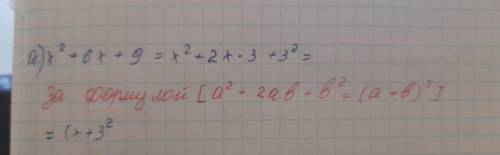 а) x² + 6x + 9 = x² + 2x · 3 + 3² =
за формулой [a² + 2ab - b² = (a + b)²]
= (x + 3²